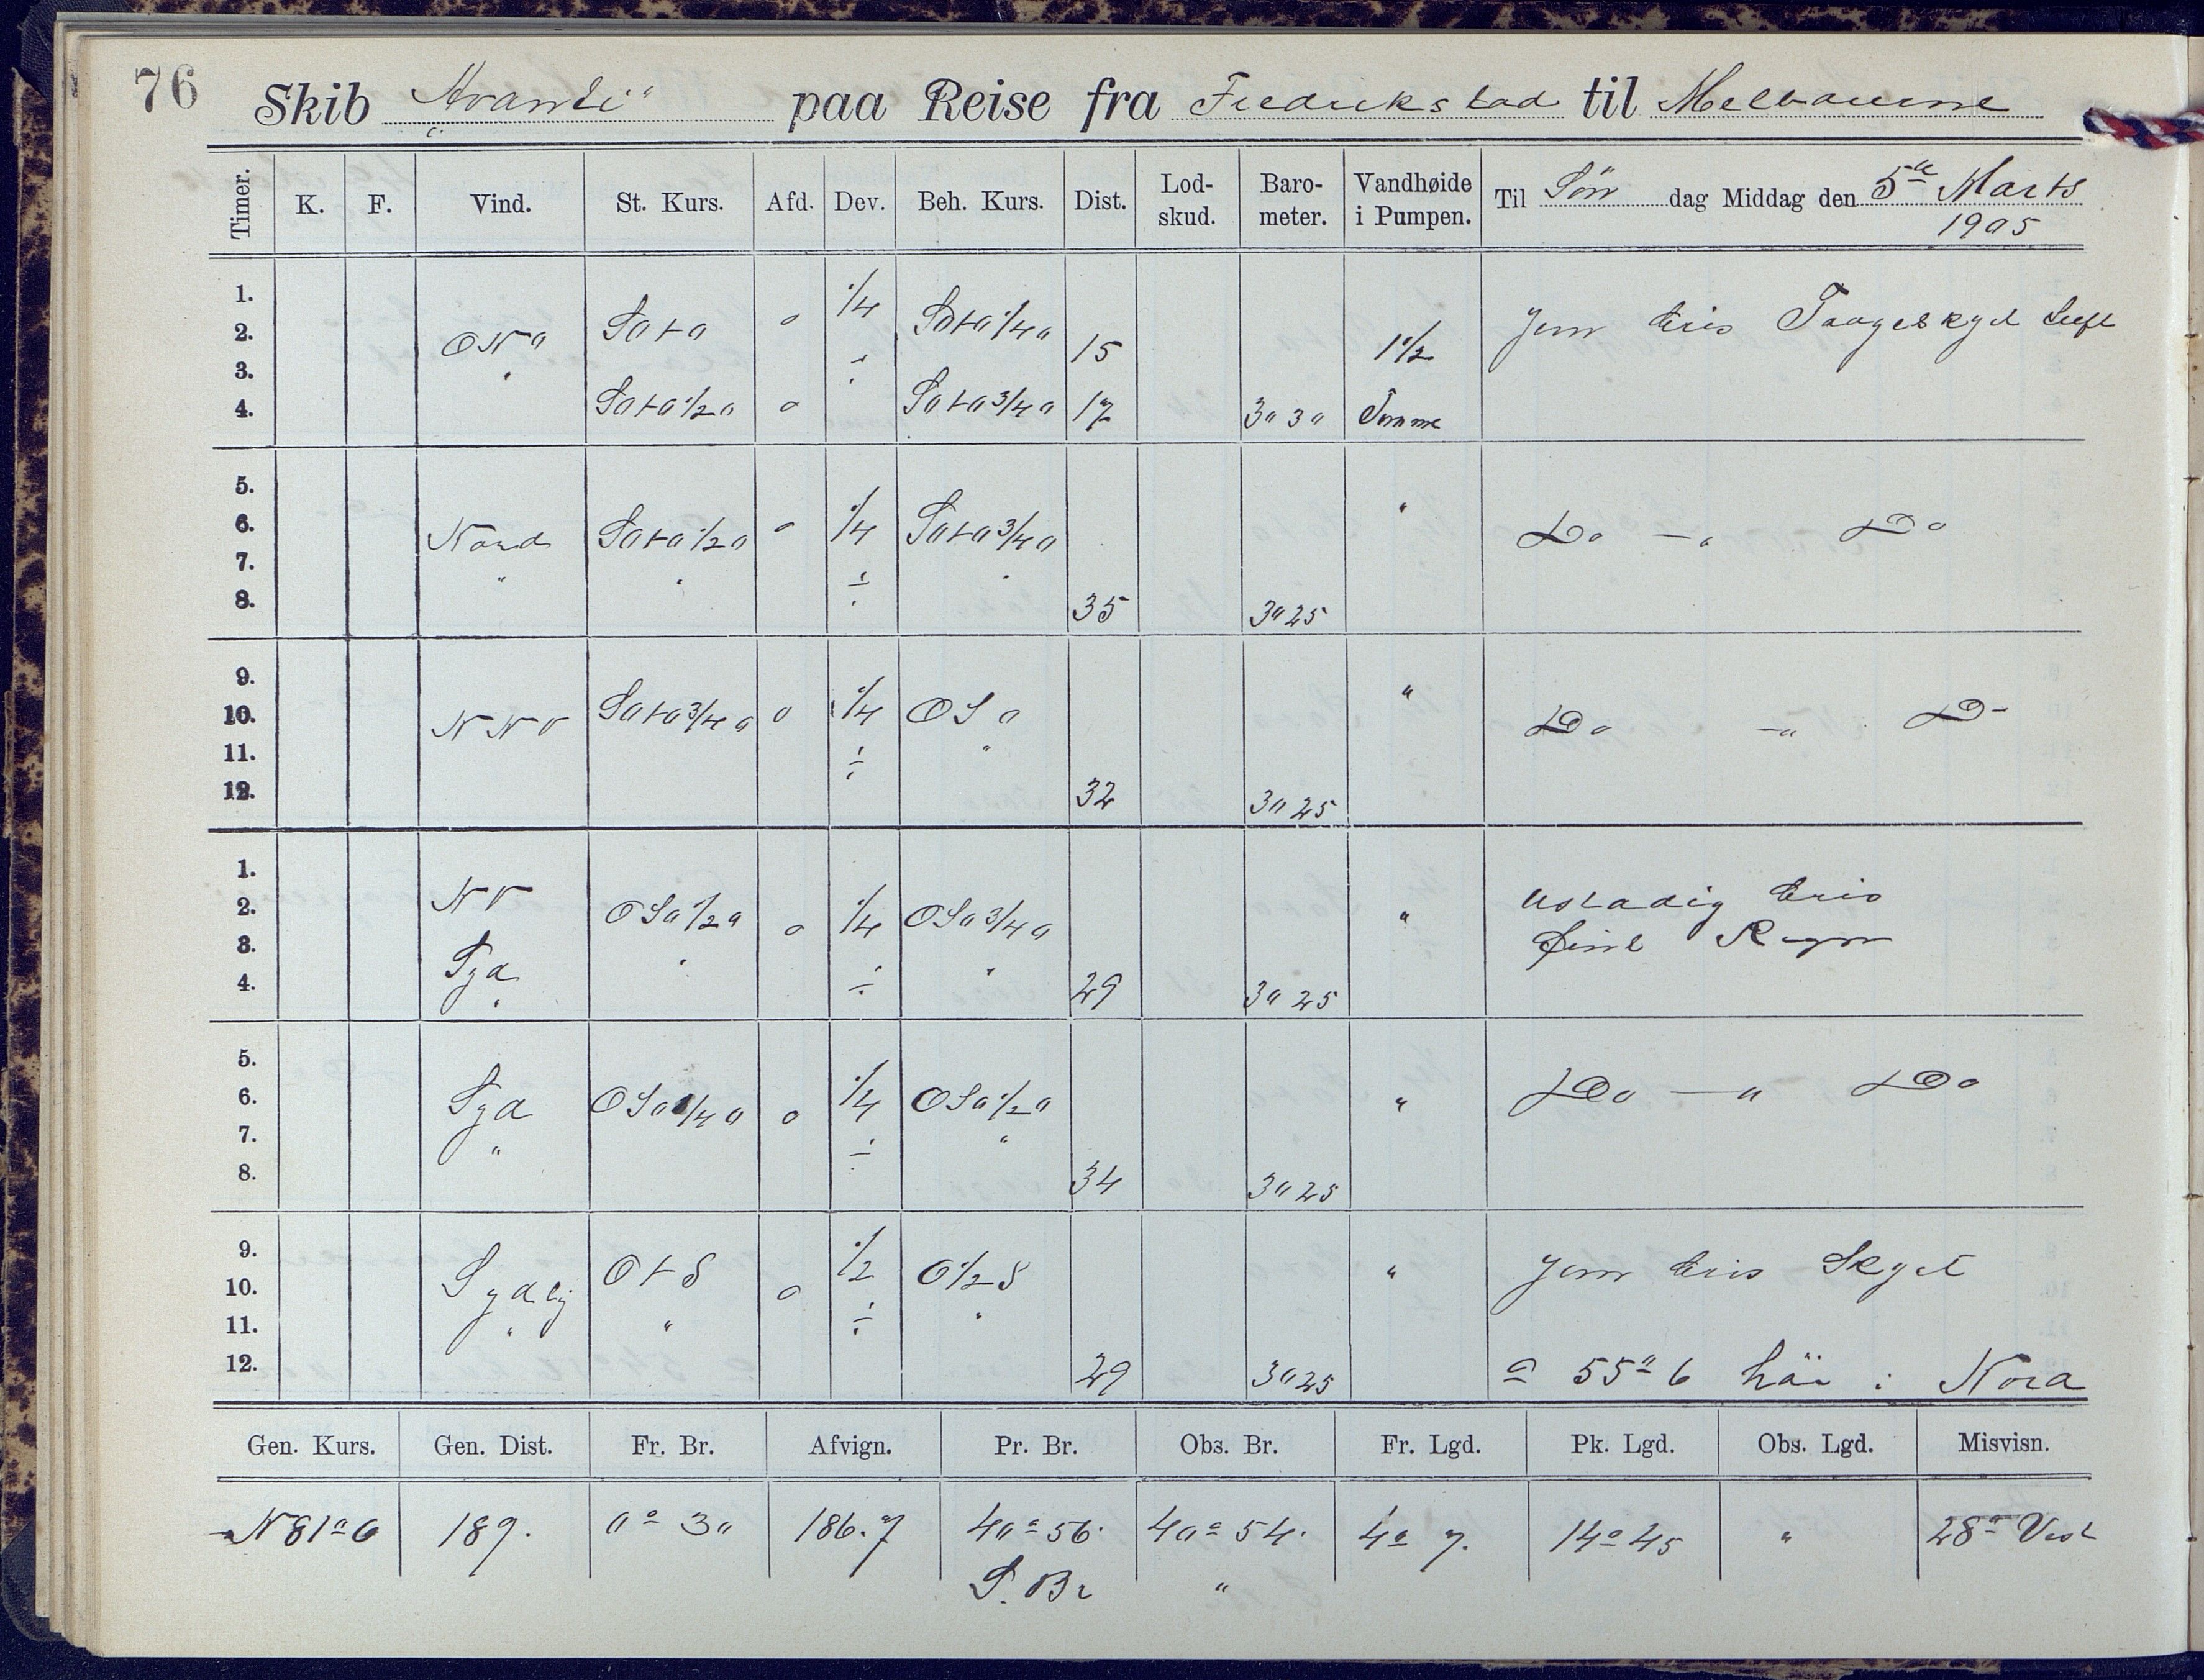 76
Skib "Avanti" paa Reise fra Fredrikstad til Melbourne
Timer. K. F. Vind. St. Kurs. Afd. Dev. Beh. Kurs. Dist. Lod-skud. Baro-meter. Vandhøide i Pumpen. Til Søn dag Middag den 5te Marts
1905
1. 1/4
2. ONO SOtO o SOtO1/4O 15 1 1/2 Jevn Bris Taageskyet Luft
3. " ÷
4. SOtO1/2O o SOtO3/4O 17 3030 Tomme
5. "
6. Nord SOtO1/2O o 1/4 SOtO3/4O Do — " Do
7. " " ÷ "
8. 35 3025
9. "
10. NNV SOtO3/4O o 1/4 OSO Do — " Do
11. ÷ "
12. 32 3025
1. NV Ustadig Bris
2. OSO1/2O o 1/4 OSO3/4O " Fint Regn
3. Syd " ÷ "
4. " 29 3025
5.
6. Syd OSO1/4O o 1/4 OSO1/2O " Do — " Do
7. " ÷ "
8. 34 3025
9. OtS 1/2 O1/2S " Jevn Bris Skyet
10. Sydlig o
11. " " ÷ "
12. 29 3025 55° 6
Gen. Kurs. Gen. Dist. Fr. Br. Afvign. Pr. Br. Obs. Br. Fr. Lgd. Pk. Lgd. Obs. Lgd. Misvisn.
N 81° O 189. 0° 30 186.7 40° 56' 40° 54' 4° 7' 14° 45 " 28° Vest
S. Br "